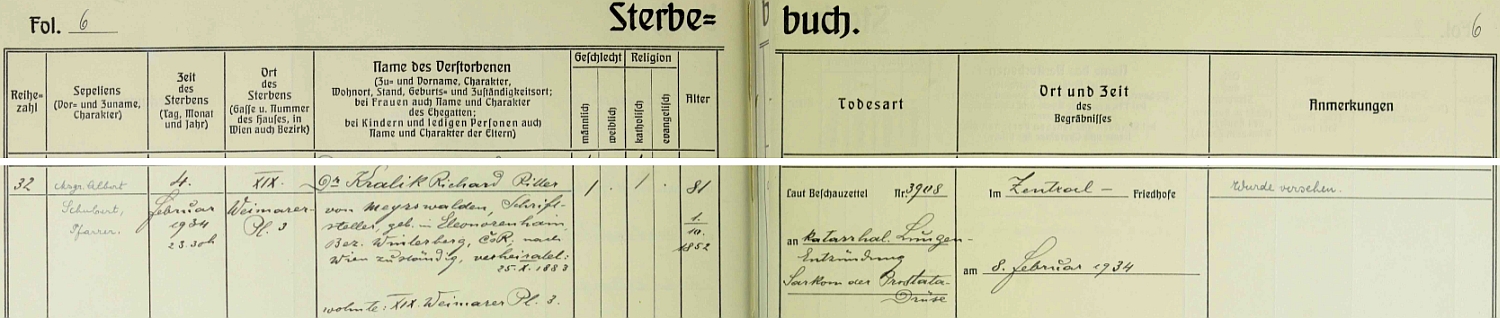 Fol. 6
Sterbe=
buch.
6
Reihe-
zahl
Sepeliens
(Vor- und Zuname,
Charakter)
Zeit
des
Sterbens
(Tag, Monat
und Jahr)
Ort
des
Sterbens
(Gasse u. Nummer
des Hauses, in
Wien auch Bezirk)
Name des Verstorbenen
(Zu- und Vorname, Charakter,
Wohnort, Stand, Geburts- und Zuständigkeitsort;
bei Frauen auch Name und Charakter
des Ehegatten;
bei Kindern und ledigen Personen auch
Name und Charakter der Eltern)
Geschlecht
männlich
weiblich
Religion
katholisch
evangelisch
Alter
Todesart
Ort und Zeit
des
Begräbnisses
Anmerkungen
32
Msgr. Albert
Schubert,
Pfarrer.
4.
Februar
1934
23.30h
XIX.
Weimarer-
Pl. 3
Dr Kralik Richard Ritter
von Meyrswalden, Schrift-
steller, geb. in Eleonorenhain,
Bez. Winterberg, ČSR, nach
Wien zuständig, verheiratet:
25.X.1883
wohnte: XIX. Weimarer Pl. 3.
1 . 1 .
81
1.
10.
1852
Laut Beschauzettel Nr. 3908
an katarrhal. Lungen-
Entzündung
Sarkom der Prostata-
Drüse
Im Zentral- Friedhofe
am 8. Februar 1934
Wurde versehen.